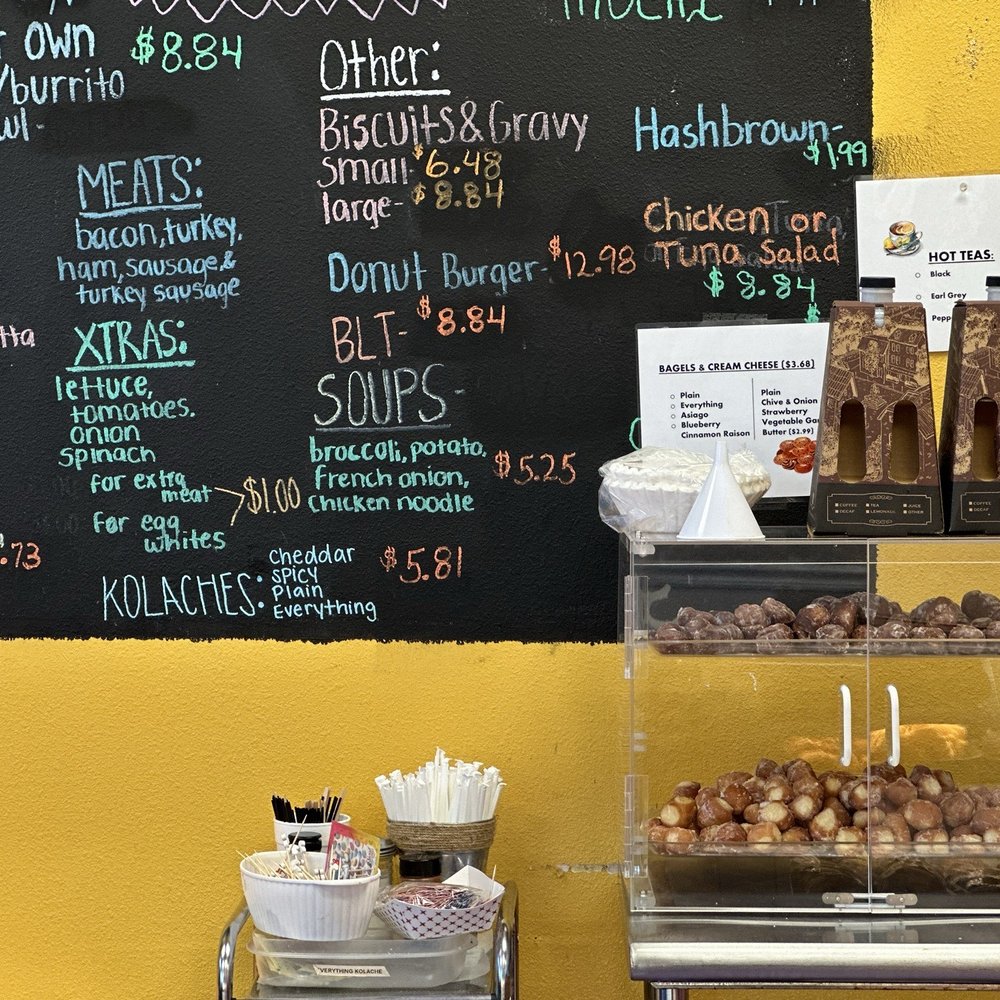 own
$8.84
/burrito
wl-
MEATS:
bacon, turkey,
ham, sausage, &
turkey sausage
tta
XTRAS:
lettuce,
tomatoes.
onion
spinach
for extra
meat
$1.00
for egg
whites
.73
KOLACHES:
Cheddar
SPICY
Plain
Everything
$5.81
Other:
Biscuits & Gravy
small- $6.48
large- $8.84
Donut Burger- $12.98
BLT- $8.84
SOUPS-
broccoli, potato,
French onion,
Chicken noodle
$5.25
Hashbrown-
$1.99
Chicken or
Tuna Salad
$8.84
HOT TEAS:
Black
Earl Grey
Pepp
BAGELS & CREAM CHEESE ($3.68)
Plain
Everything
Asiago
Blueberry
Cinnamon Raison
Plain
Chive & Onion
Strawberry
Vegetable Gar
Butter ($2.99)
COFFEE TEA JUICE
DECAF LEMONADE OTHER
COFFEE
DECAF
VERYTHING KOLACHE